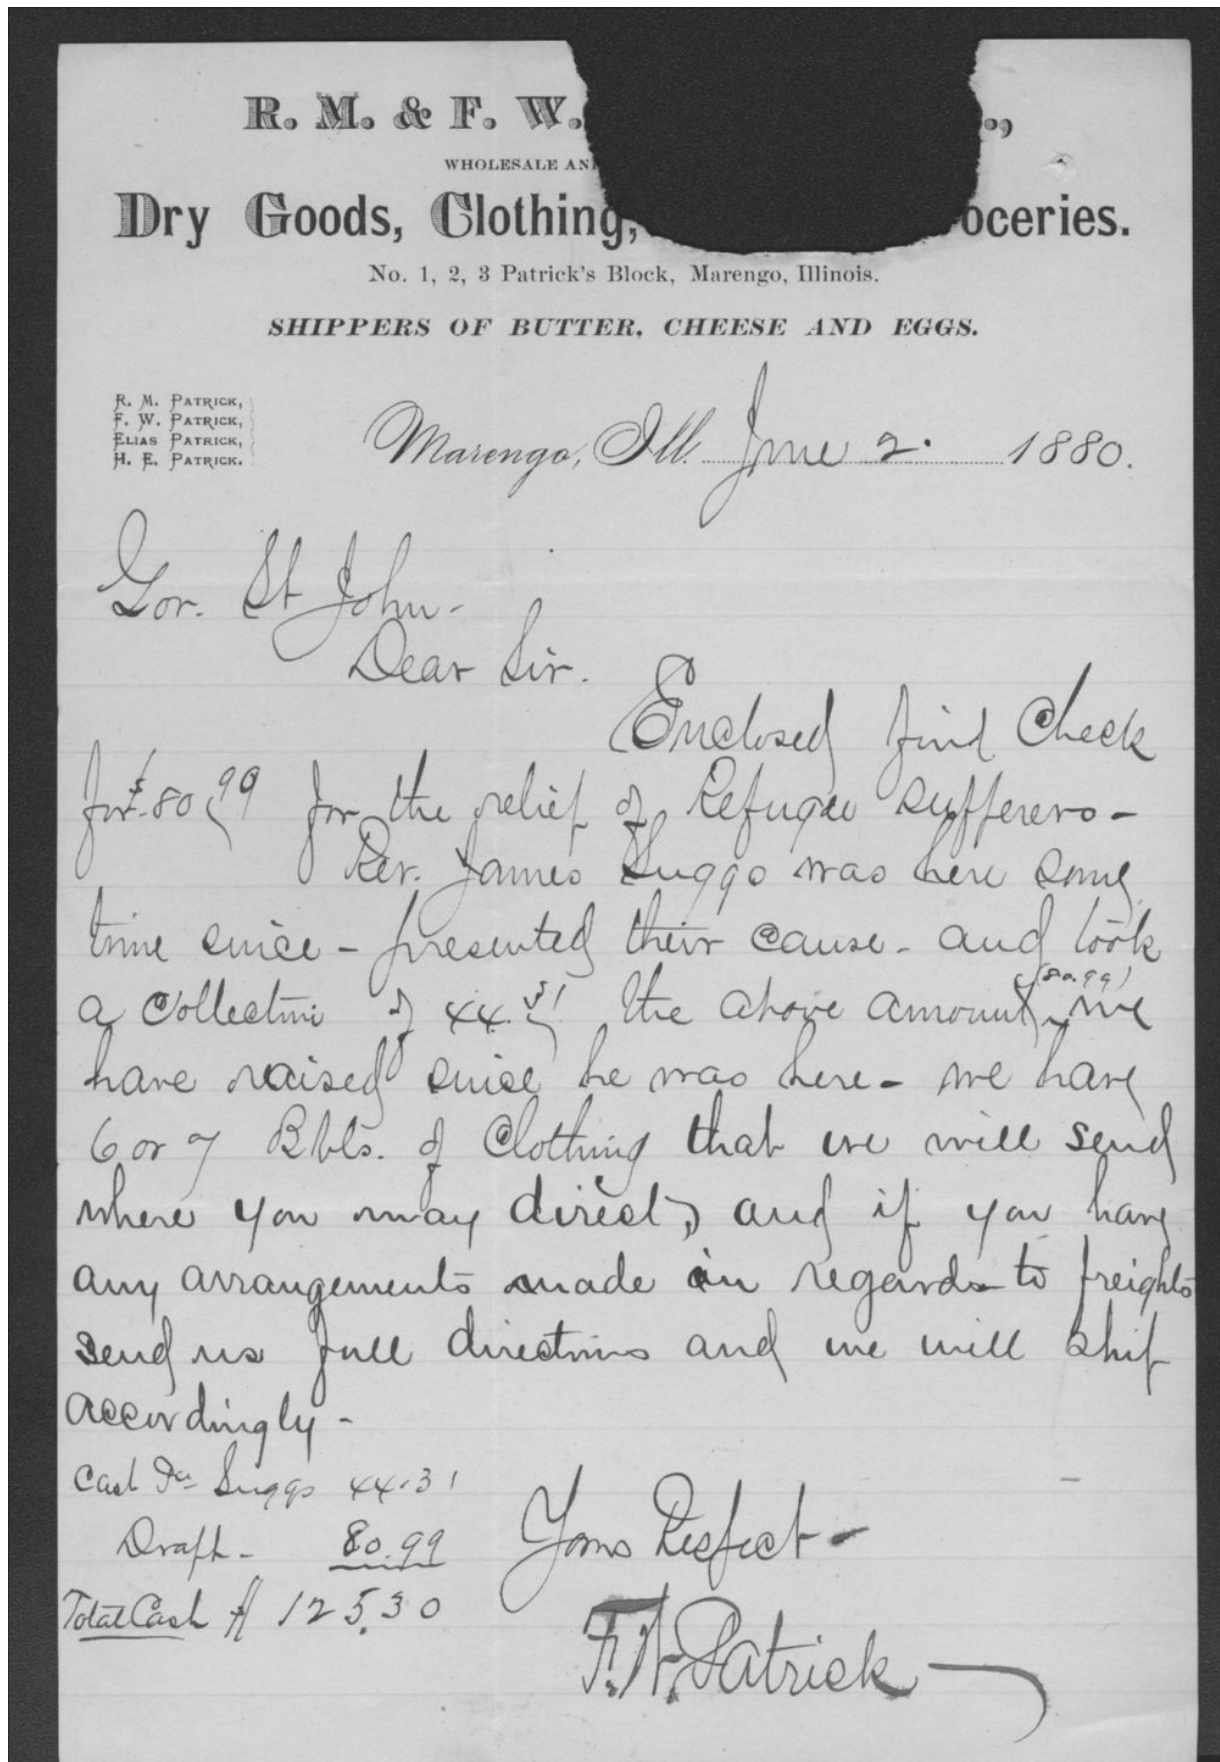 R. M. & F. W. .,
WHOLESALE AN
Dry Goods, Clothing, oceries.
No. 1, 2, 3 Patrick's Block, Marengo, Illinois.
SHIPPERS OF BUTTER, CHEESE AND EGGS.
R. M. PATRICK,
F. W. PATRICK,
ELIAS PATRICK,
H. E. PATRICK.
Marengo, Ill. June 2. 1880.
Gov. St John-
Dear Sir.
Enclosed find Check
for $80.99 for the relief of Refugee sufferers-
Rev. James Suggs was here some
time since - presented their cause - and took
a Collection of 44.31 the above amount (80.99) we
have raised since he was here - we have
6 or 7 Bbls. of Clothing that we will send
where you may direct, and if you have
any arrangements made in regards to freights
send us full directions and we will ship
accordingly -
Cash Suggs 44.31
Draft - 80.99
Total Cash $ 125.30
Yours Respect -
F. W. Patrick